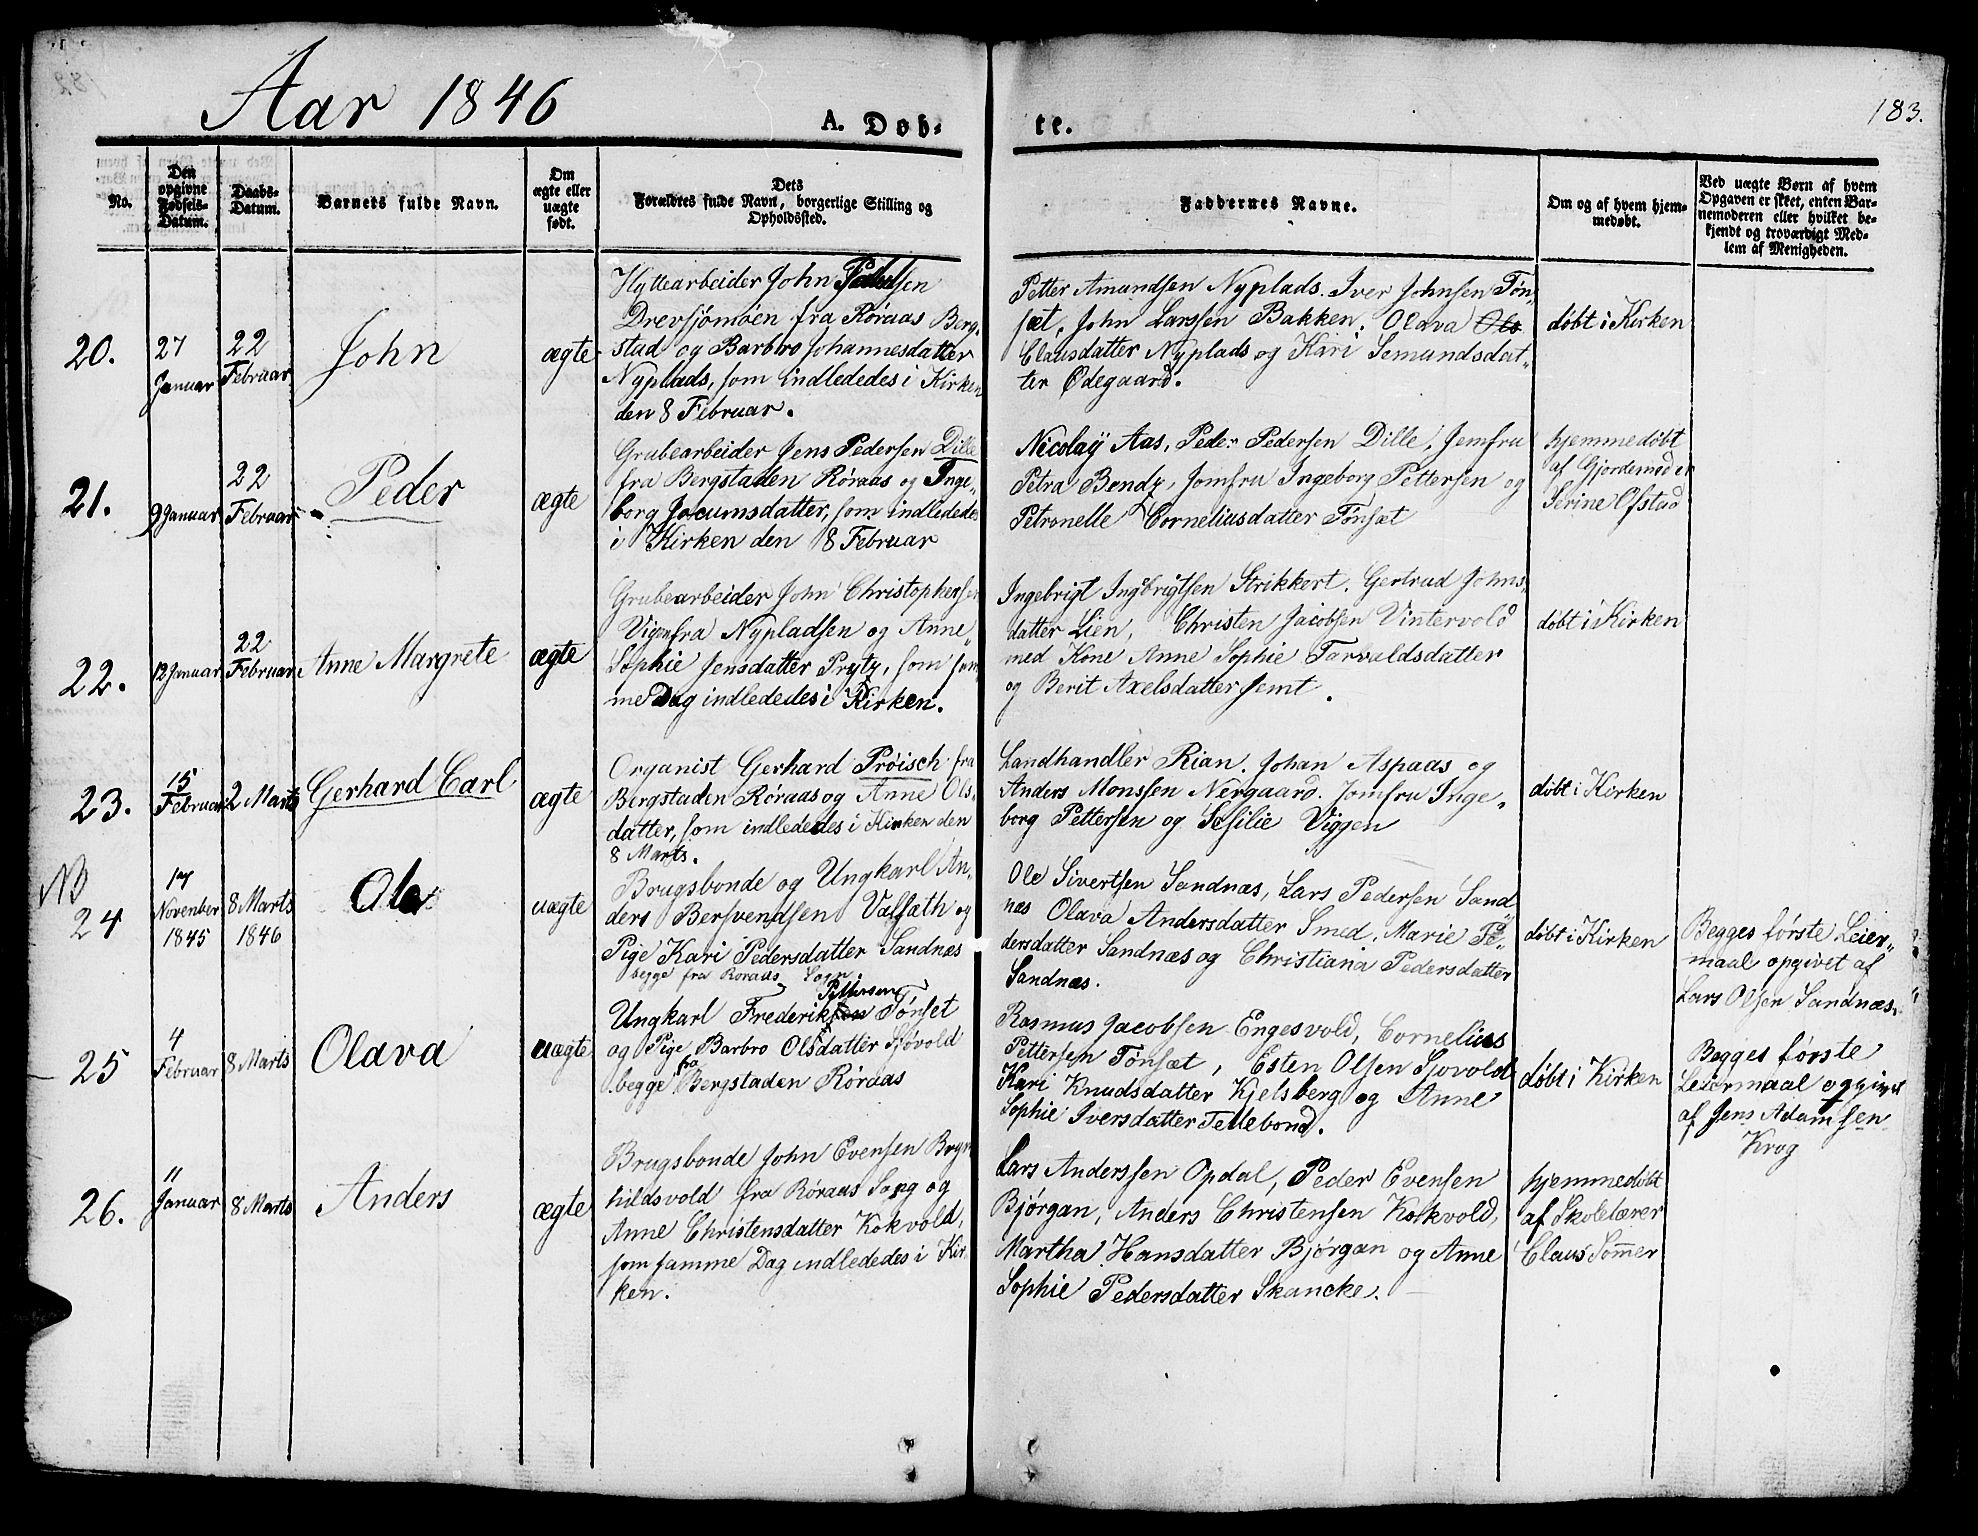 Aar 1846
A. Døb-
te.
183.
No.
Den
opgivne
Fødsels-
Datum.
Daabs-
Datum.
Barnets fulde Navn.
Om
ægte eller
uægte
født.
Dets
Forældres fulde Navn, borgerlige Stilling og
Opholdssted.
Faddernes Navne.
Om og af hvem hjem-
medøbt.
Ved uægte Børn af hvem
Opgaven er skeet, enten Bar-
nemoderen eller hvilket be-
kjendt og troværdigt Med-
lem af Menigheden.
20.
27
Januar
22
Februar
John
ægte
Hyttearbeider John
Drevsjømoen fra Røraas Berg-
stad og Barbro Johannesdatter
Nyplads, som indlededes i Kirken
den 8 Februar.
Petter Amundsen Nyplads. Iver Johnsen Tøn-
sæt, John Larssen Bakken. Olava Ols
Clausdatter Nyplads og Kari Semundsdat-
ter Ødegaard.
døbt i Kirken
21.
9 Januar
22
Februar
Peder
ægte
Grubearbeider Jens Pedersen Dille
fra Bergstaden Røraas og Inge-
borg Jocumsdatter, som indlededes
i Kirken den 8 Februar
Nicolaÿ Aas, Peder Pedersen Dille, Jomfru
Petra Bendz, Jomfru Ingeborg Pettersen og
Petronelle Corneliusdatter Tønsæt
hjemmedøbt
af Gjordemoder
Serine Ofstad
22.
12 Januar
22
Februar
Anne Margrete
ægte
Grubearbeider John Christophersen
Vigen fra Nypladsen og Anne
Sophie Jensdatter Prytz, som sam
me Dag indlededes i Kirken.
Ingebrigt Ingbrigtsen Strikkert. Gertrud Johns-
datter Lien, Christen Jacobsen Vintervold
med Kone Anne Sophie Tarvaldsdatter
og Berit Axelsdatter Jemt.
døbt i Kirken
23.
15
Februar
2 Marts
Gerhard Carl
ægte
Organist Gerhard Prøisch fra
Bergstaden Røraas og Anne Ols-
datter, som indlededes i Kirken den
8 Marts.
Landhandler Rian. Johan Aspaas og
Anders Monssen Nergaard. Jomfru Inge-
borg Pettersen og Sesilie Viggen
døbt i Kirken
NB
24
17
November
1845
8 Marts
1846
Ole
uægte
Brugsbonde og Ungkarl An-
ders Bersvendsen Valsath og
Pige Kari Pedersdatter Sandnæs
begge fra Røraas Sogn
Ole Sivertsen Sandnæs, Lars Pedersen Sand-
næs Olava Andersdatter Smed, Marie Pe-
dersdatter Sandnæs og Christiana Pedersdatter
Sandnæs.
døbt i Kirken
Begges første Leier-
maal opgivet af
Lars Olsen Sandnæs.
25
4
Februar
8 Marts
Olava
uægte
Pettersen
Ungkarl Frederiksen Tønset
og Pige Barbro Olsdatter Sjøvold
begge fra Bergstaden Røraas
Rasmus Jacobsen Engesvold, Cornelius
Pettersen Tønsæt, Esten Olsen Sjovold
Kari Knudsdatter Kjelsberg og Anne
Sophie Iversdatter Tellebond.
døbt i Kirken
Begges første
Leiermaal opgivet
af Jens Adamsen
Krog
26.
11
Januar
8 Marts
Anders
ægte
Brugsbonde John Evensen Bryn
hildsvold fra Røraas Sogn og
Anne Christensdatter Kokvold,
som samme Dag indlededes i Kir-
ken.
Lars Anderssen Opdal, Peder Evensen
Bjørgan, Anders Christensen Kokvold,
Martha Hansdatter Bjørgan og Anne
Sophie Pedersdatter Skancke.
hjemmedøbt
af Skolelærer
Claus Sommer